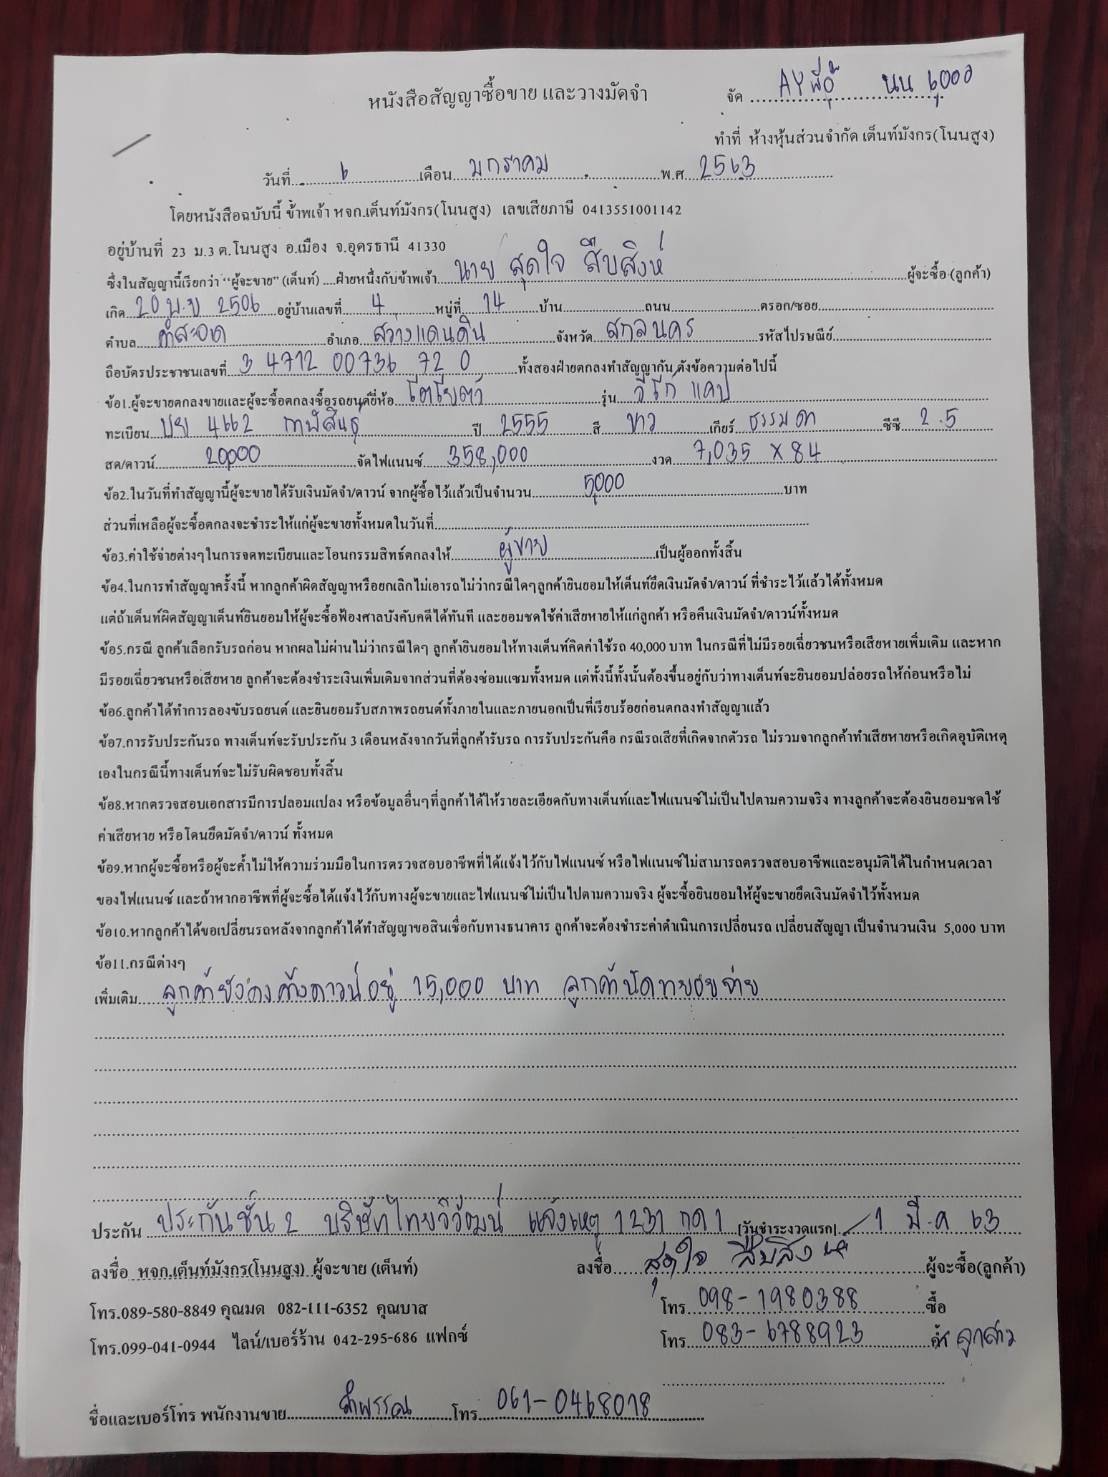 หนังสือสัญญาซื้อขาย และวางมัดจำ
จัด AY พี่อู๊ นน 6,000
ทำที่ ห้างหุ้นส่วนจำกัด เต็นท์มังกร(โนนสูง)
วันที่ 6 เดือน มกราคม พ.ศ 2563
โดยหนังสือฉบับนี้ ข้าพเจ้า หจก.เต็นท์มังกร(โนนสูง) เลขเสียภาษี 0413551001142
อยู่บ้านที่ 23 ม.3 ต.โนนสูง อ.เมือง จ.อุดรธานี 41330
ซึ่งในสัญญานี้เรียกว่า "ผู้จะขาย" (เต็นท์) ฝ่ายหนึ่งกับข้าพเจ้า นาย สุดใจ สืบสิงห์ ผู้จะซื้อ (ลูกค้า)
เกิด 20 พ.ย 2506 อยู่บ้านเลขที่ 4 หมู่ที่ 14 บ้าน ถนน ตรอก/ซอย
ตำบล คำสะอาด อำเภอ สว่างแดนดิน จังหวัด สกลนคร รหัสไปรษณีย์
ถือบัตรประชาชนเลขที่ 3 4712 00736 72 0 ทั้งสองฝ่ายตกลงทำสัญญากัน ดังข้อความต่อไปนี้
ข้อ1.ผู้จะขายตกลงขายและผู้จะซื้อตกลงซื้อรถยนต์ยี่ห้อ โตโยต้า รุ่น วีโก้ แคป
ทะเบียน 4662 กาฬสินธุ์ ปี 2555 สี ขาว เกียร์ ธรรมดา ซีซี 2.5
สด/ดาวน์ 20,000 จัดไฟแนนซ์ 358,000 งวด 7,035 x 84
ข้อ2.ในวันที่ทำสัญญานี้ผู้จะขายได้รับเงินมัดจำ/ดาวน์ จากผู้ซื้อไว้แล้วเป็นจำนวน 5,000 บาท
ส่วนที่เหลือผู้จะซื้อตกลงจะชำระให้แก่ผู้จะขายทั้งหมดในวันที่
ข้อ3.ค่าใช้จ่ายต่างๆในการจดทะเบียนและโอนกรรมสิทธ์ตกลงให้ ผู้ขาย เป็นผู้ออกทั้งสิ้น
ข้อ4.ในการทำสัญญาครั้งนี้ หากลูกค้าผิดสัญญาหรือยกเลิกไม่เอารถไม่ว่ากรณีใดๆลูกค้ายินยอมให้เต็นท์ยึดเงินมัดจำ/ดาวน์ ที่ชำระไว้แล้วได้ทั้งหมด
แต่ถ้าเต็นท์ผิดสัญญาเต็นท์ยินยอมให้ผู้จะซื้อฟ้องศาลบังคับคดีได้ทันที และยอมชดใช้ค่าเสียหายให้แก่ลูกค้า หรือคืนเงินมัดจำ/ดาวน์ทั้งหมด
ข้อ5.กรณี ลูกค้าเลือกรับรถก่อน หากผลไม่ผ่านไม่ว่ากรณีใดๆ ลูกค้ายินยอมให้ทางเต็นท์คิดค่าใช้รถ 40,000 บาท ในกรณีที่ไม่มีรอยเฉี่ยวชนหรือเสียหายเพิ่มเติม และหาก
มีรอยเฉี่ยวชนหรือเสียหาย ลูกค้าจะต้องชำระเงินเพิ่มเติมจากส่วนที่ต้องซ่อมแซมทั้งหมด แต่ทั้งนี้ทั้งนั้นต้องขึ้นอยู่กับว่าทางเต็นท์จะยินยอมปล่อยรถให้ก่อนหรือไม่
ข้อ6.ลูกค้าได้ทำการลองขับรถยนต์ และยินยอมรับสภาพรถยนต์ทั้งภายในและภายนอกเป็นที่เรียบร้อยก่อนตกลงทำสัญญาแล้ว
ข้อ7.การรับประกันรถ ทางเต็นท์จะรับประกัน 3 เดือนหลังจากวันที่ลูกค้ารับรถ การรับประกันคือ กรณีรถเสียที่เกิดจากตัวรถ ไม่รวมจากลูกค้าทำเสียหายหรือเกิดอุบัติเหตุ
เองในกรณีนี้ทางเต็นท์จะไม่รับผิดชอบทั้งสิ้น
ข้อ8.หากตรวจสอบเอกสารมีการปลอมแปลง หรือข้อมูลอื่นๆที่ลูกค้าได้ให้รายละเอียดกับทางเต็นท์และไฟแนนซ์ไม่เป็นไปตามความจริง ทางลูกค้าจะต้องยินยอมชดใช้
ค่าเสียหาย หรือโดนยึดมัดจำ/ดาวน์ ทั้งหมด
ข้อ9.หากผู้จะซื้อหรือผู้จะค้ำไม่ให้ความร่วมมือในการตรวจสอบอาชีพที่ได้แจ้งไว้กับไฟแนนซ์ หรือไฟแนนซ์ไม่สามารถตรวจสอบอาชีพและอนุมัติได้ในกำหนดเวลา
ของไฟแนนซ์ และถ้าหากอาชีพที่ผู้จะซื้อได้แจ้งไว้กับทางผู้จะขายและไฟแนนซ์ไม่เป็นไปตามความจริง ผู้จะซื้อยินยอมให้ผู้จะขายยึดเงินมัดจำไว้ทั้งหมด
ข้อ10.หากลูกค้าได้ขอเปลี่ยนรถหลังจากลูกค้าได้ทำสัญญาขอสินเชื่อกับทางธนาคาร ลูกค้าจะต้องชำระค่าดำเนินการเปลี่ยนรถ เปลี่ยนสัญญา เป็นจำนวนเงิน 5,000 บาท
ข้อ11.กรณีต่างๆ
เพิ่มเติม ลูกค้ายังคงค้างดาวน์อยู่ 15,000 บาท ลูกค้านัดทยอยจ่าย
ประกัน ประกันชั้น 2 บริษัทไทยวิวัฒน์ แจ้งเหตุ 1231 กด 1 [วันชำระงวดแรก] 1 มี.ค 63
ลงชื่อ หจก.เต็นท์มังกร(โนนสูง) ผู้จะขาย (เต็นท์) ลงชื่อ สุดใจ สืบสิงห์ ผู้จะซื้อ(ลูกค้า)
โทร.089-580-8849 คุณมด 082-111-6352 คุณบาส โทร 098-1980388 ซื้อ
โทร.099-041-0944 ไลน์/เบอร์ร้าน 042-295-686 แฟกซ์ โทร 083-6788923 ลูกสาว
ชื่อและเบอร์โทร พนักงานขาย ลำพรรณ โทร 061-0468018